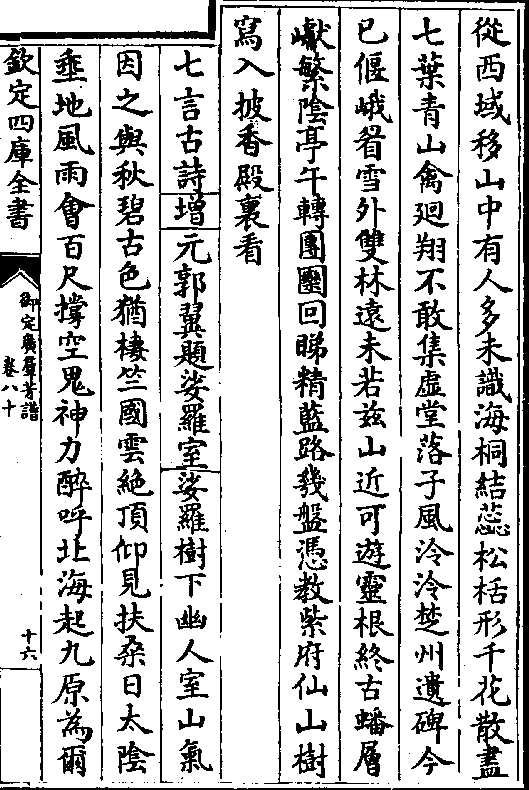 從西域移山中有人多未識海桐結蕊松栝形千花散盡
七葉青山禽廻翔不敢集虛堂落子風泠泠楚州遺碑今
已偃峨眉雪外雙林遠未若茲山近可遊靈根終古蟠層
巘繁陰亭午轉團圞回睇精藍路幾盤憑教紫府仙山樹
寫入披香殿裏看
七言古詩增元郭翼題娑羅室娑羅樹下幽人室山氣
因之與秋碧古色猶棲竺國雲絶頂仰見扶桑日太陰
垂地風雨會百尺撐空鬼神力醉呼北海起九原為爾
欽定四庫全書
御定廣羣芳譜
卷八十
十六